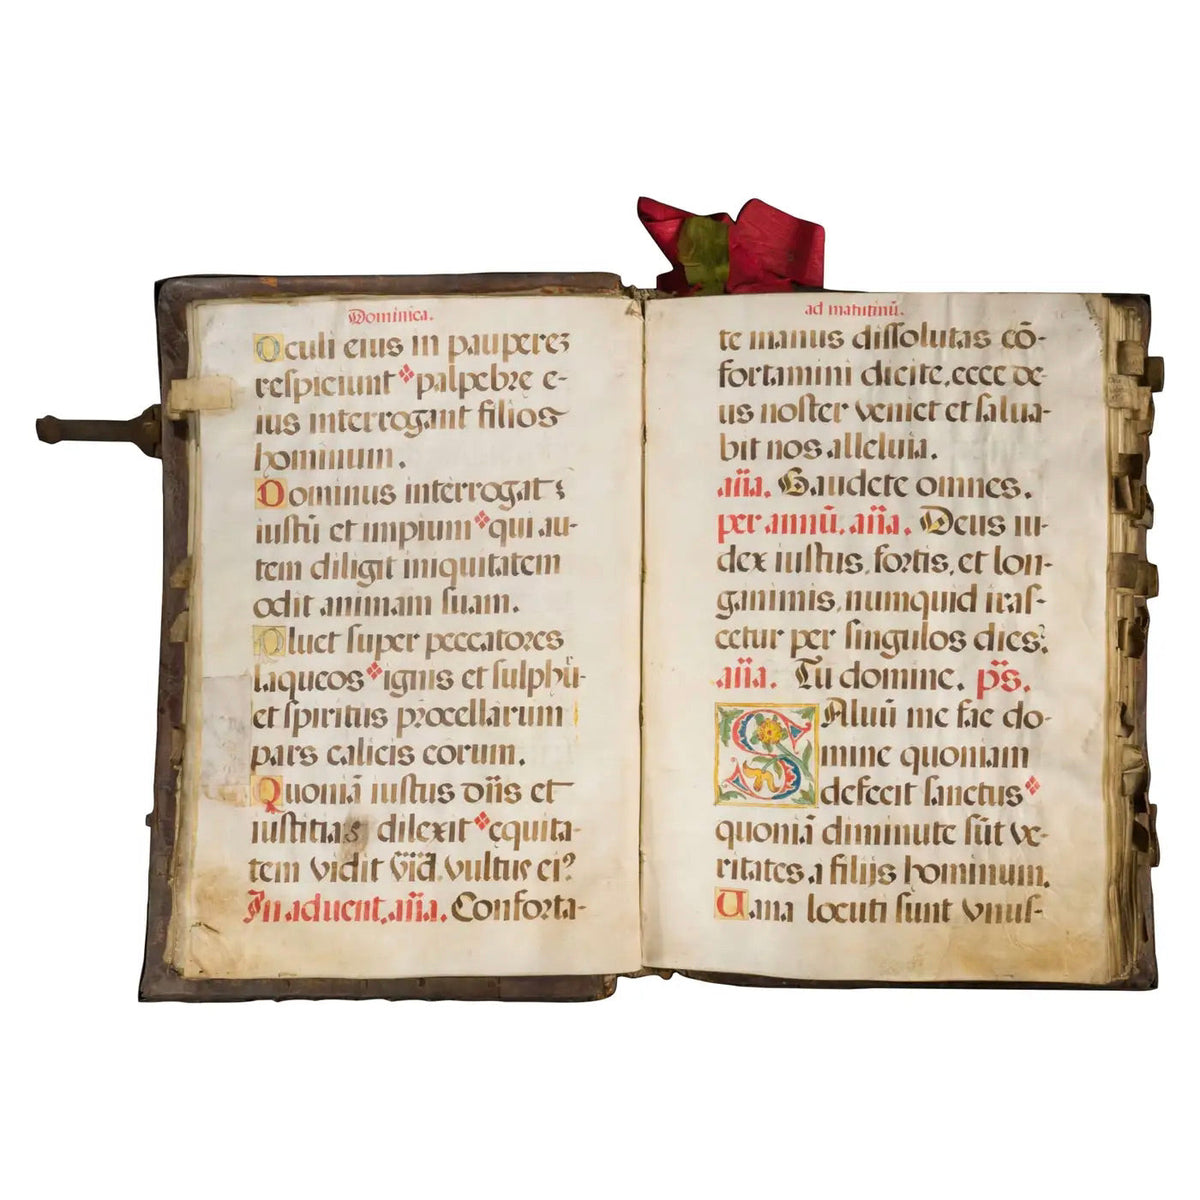 Dominica.
Oculi eius in pauperez
respiciunt palpebre e-
ius interrogant filios
hominum.
Dominus interrogat
iustū et impium qui au-
tem diligit iniquitatem
odit animam suam.
Pluet super peccatores
laqueos ignis et sulphu-
et spiritus procellarum
pars calicis eorum.
Quoniā iustus dñs et
iustitias dilexit equita-
tem vidit vultus ei?
In aduent. aña. Conforta-
ad matutinū.
te manus dissolutas cō-
fortamini dicite, ecce de-
us noster veniet et salua-
bit nos alleluia.
aña. Gaudete omnes.
per annū. aña. Deus iu-
dex iustus, fortis, et lon-
ganimis, numquid iras-
cetur per singulos dies?
aña. Tu domine. ps.
Saluū me fac do-
mine quoniam
defecit sanctus
quoniā diminute sūt ve-
ritates a filijs hominum.
Uana locuti sunt vnus-